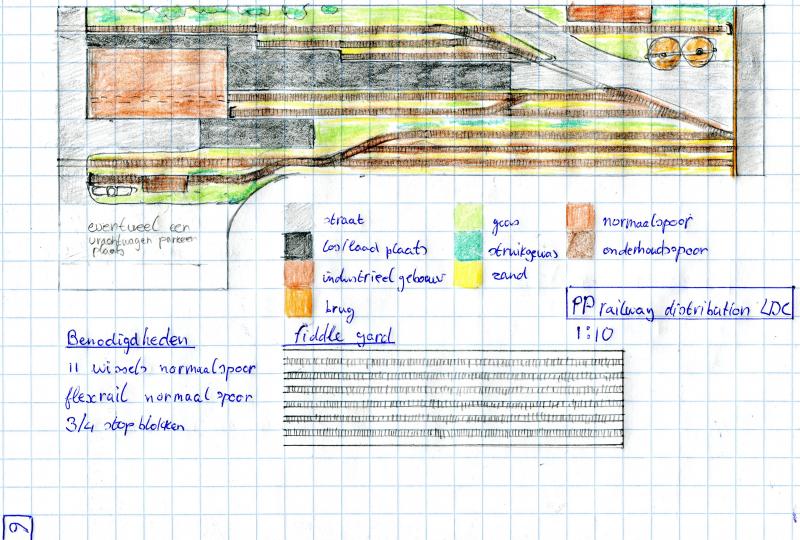 eventueel een
vrachtwagen parkeer
plaats
straat
los/laad plaats
industrieel gebouw
brug
gras
struikgewas
zand
normaalspoor
onderhoudsspoor
PP railway distribution LDC
1:10
Benodigdheden
11 wissels normaalspoor
flexrail normaalspoor
3/4 stopblokken
fiddle yard
9